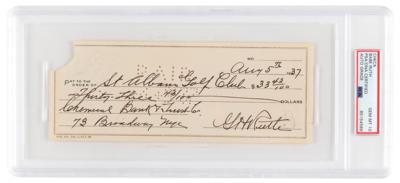 No. Aug 5th 1937
PAY TO THE ORDER OF St Albans Golf Club $33 43/100
Thirty three 43/100 DOLLARS
Chemical Bank & Trust Co
73 Broadway NYC
G H Ruth
CHECK
BABE RUTH
PSA/DNA CERTIFIED
AUTO GRADE
GEM MT 10
PSA